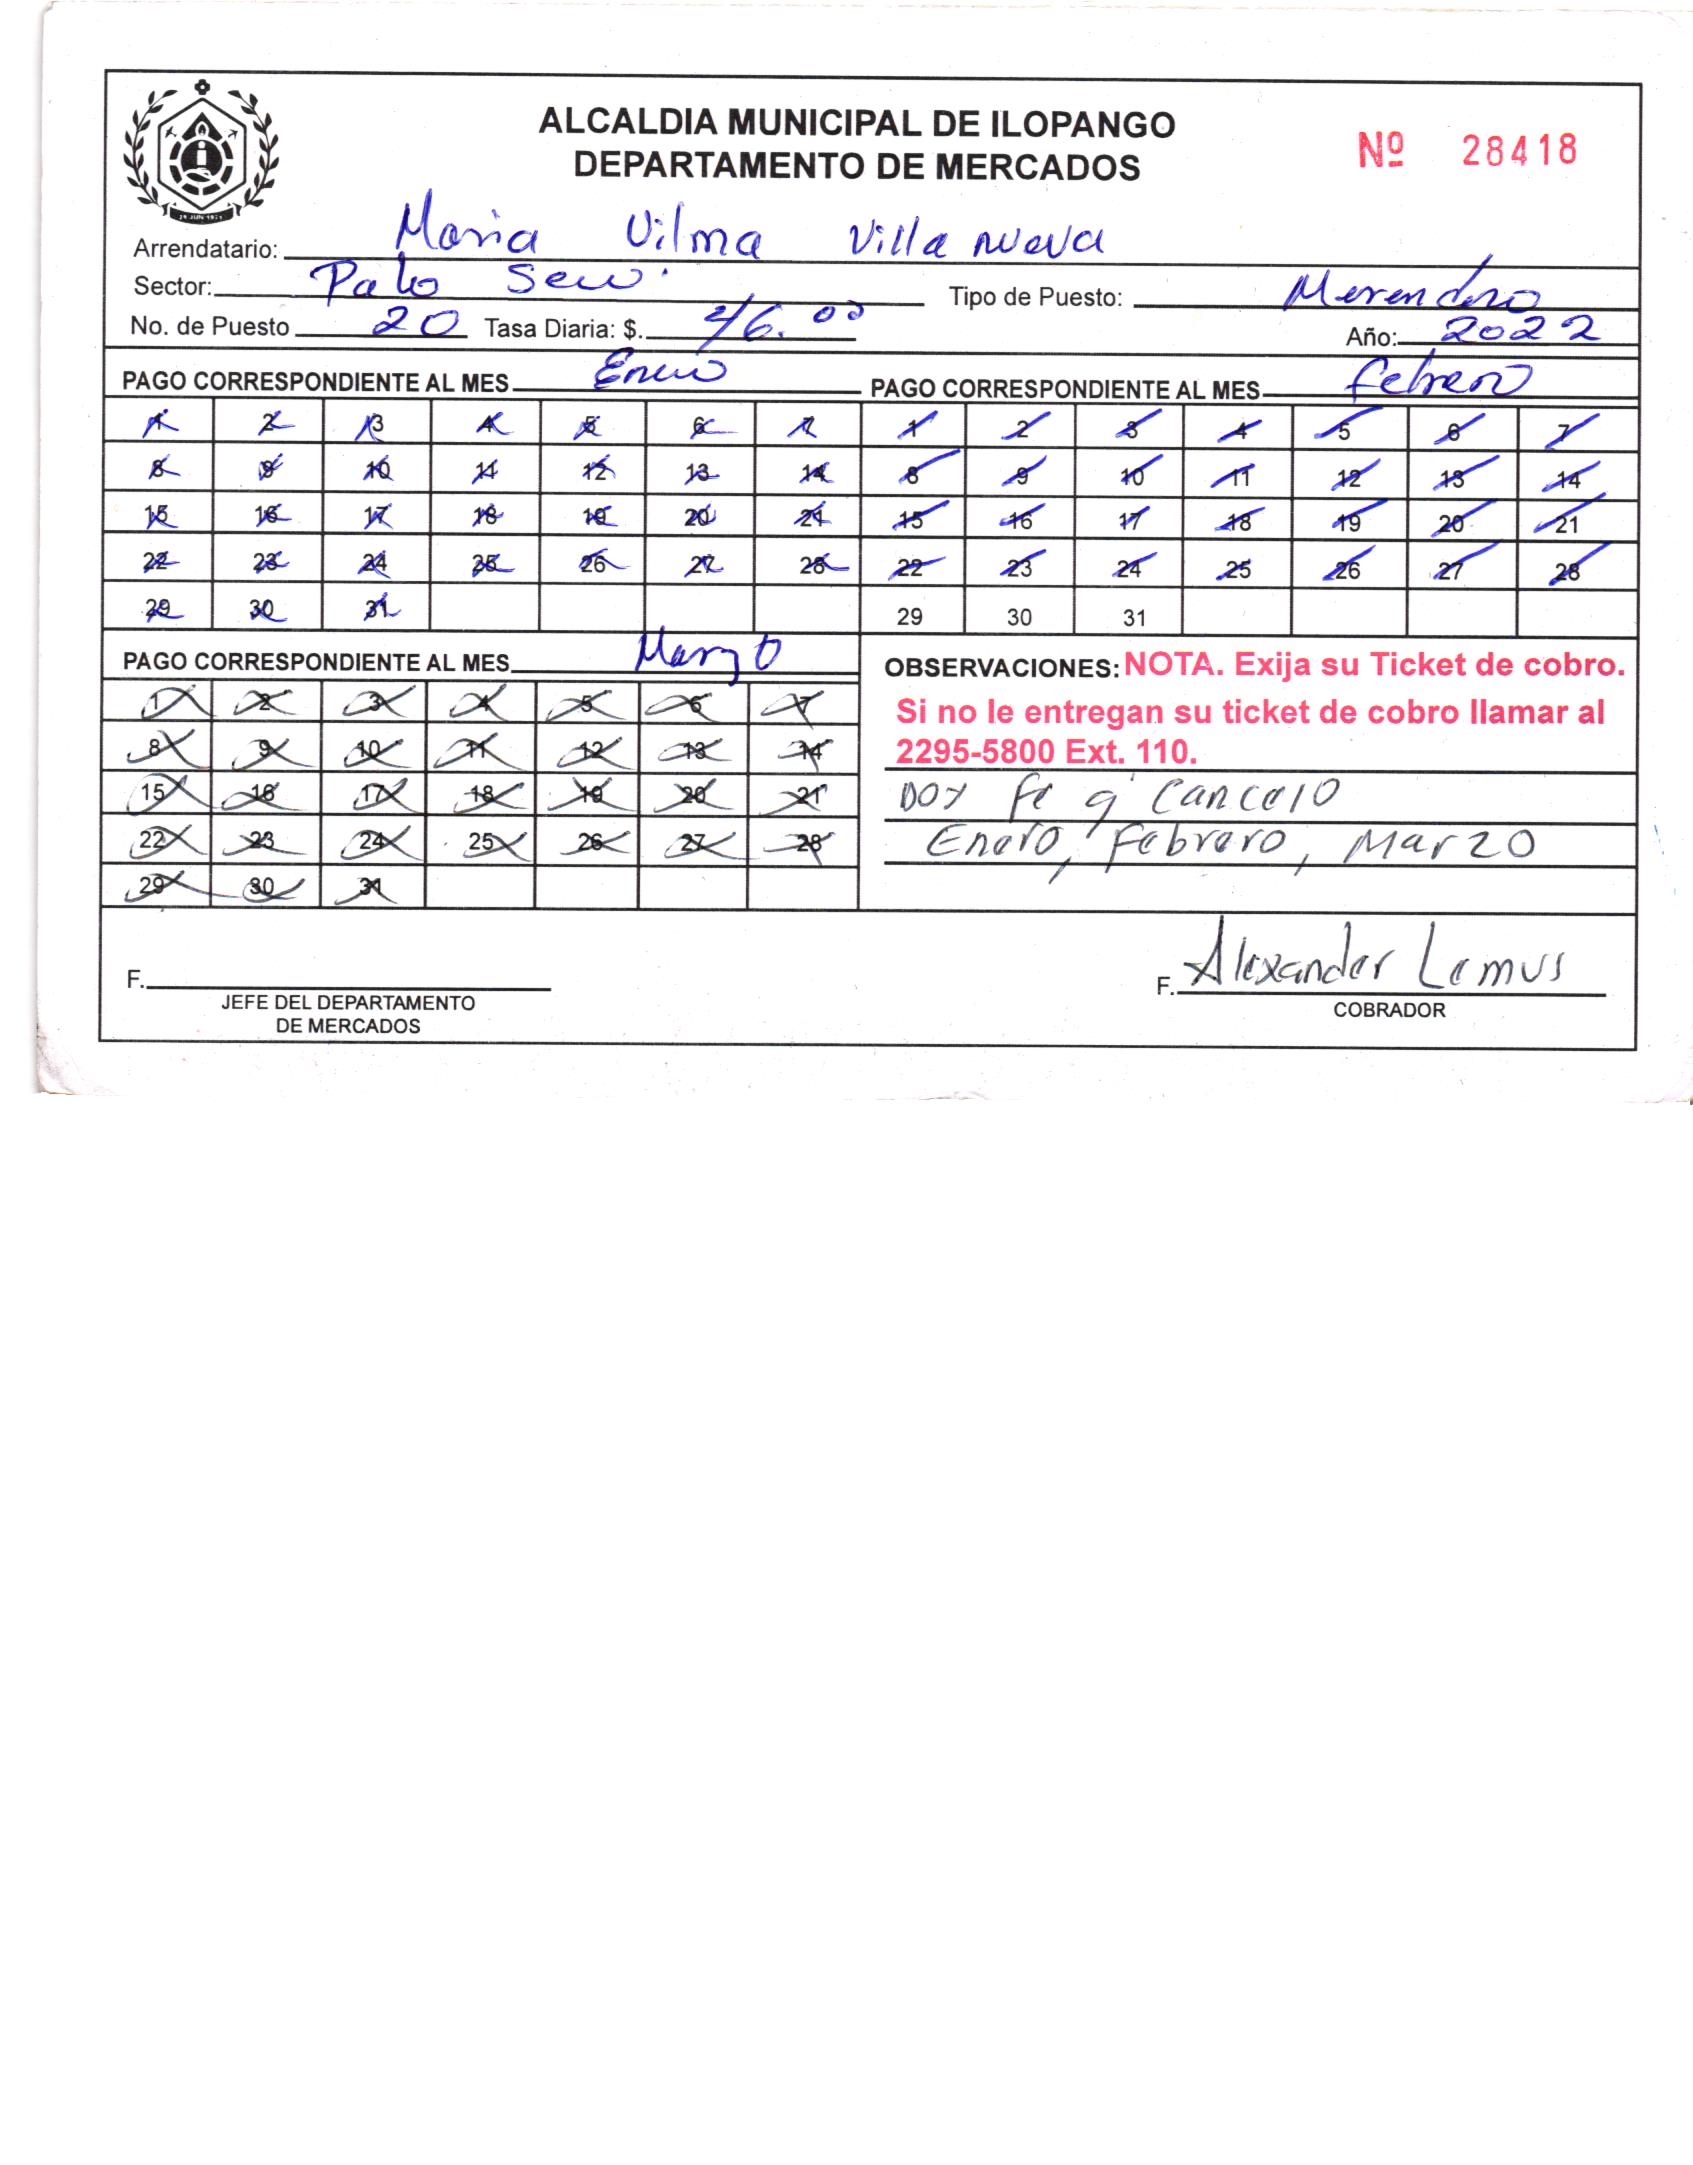 ALCALDIA MUNICIPAL DE ILOPANGO
DEPARTAMENTO DE MERCADOS
Nº 28418
24 JUN 1971
Arrendatario: Maria Vilma Villa nueva
Sector: Palo Seco. Tipo de Puesto: Merendero
No. de Puesto 20 Tasa Diaria: $. 46.00 Año: 2022
PAGO CORRESPONDIENTE AL MES Enero PAGO CORRESPONDIENTE AL MES febrero
1 2 3 4 5 6 7 1 2 3 4 5 6 7
8 9 10 11 12 13 14 8 9 10 11 12 13 14
15 16 17 18 19 20 21 15 16 17 18 19 20 21
22 23 24 25 26 27 28 22 23 24 25 26 27 28
29 30 31 29 30 31
PAGO CORRESPONDIENTE AL MES Marzo
1 2 3 4 5 6 7
8 9 10 11 12 13 14
15 16 17 18 19 20 21
22 23 24 25 26 27 28
29 30 31
OBSERVACIONES: NOTA. Exija su Ticket de cobro.
Si no le entregan su ticket de cobro llamar al
2295-5800 Ext. 110.
Doy fe q' Cancelo
Enero, Febrero, Marzo
F.
JEFE DEL DEPARTAMENTO
DE MERCADOS
F. Alexander Lemus
COBRADOR